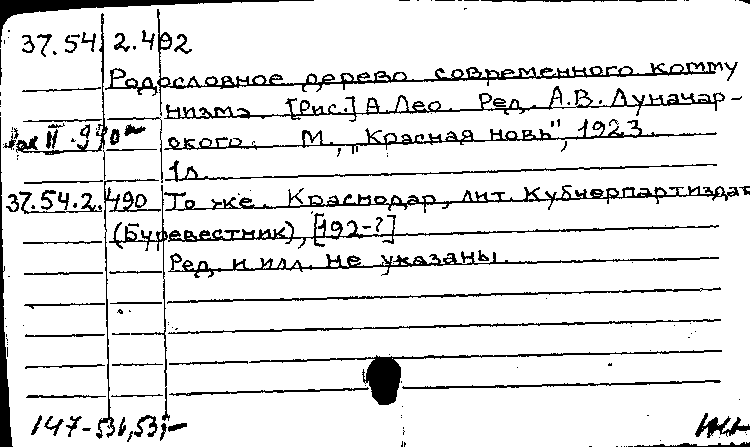 37.54.2.492
Родословное дерево современного комму
низма. [Рис.] А. Лео. Ред. А.В. Луначар-
ского. М., „Красная новь", 1923.
1л.
37.54.2.490 То же. Краснодар, лит. Кубчерпартиздат
(Буревестник), [192-?]
Ред. и илл. не указаны.